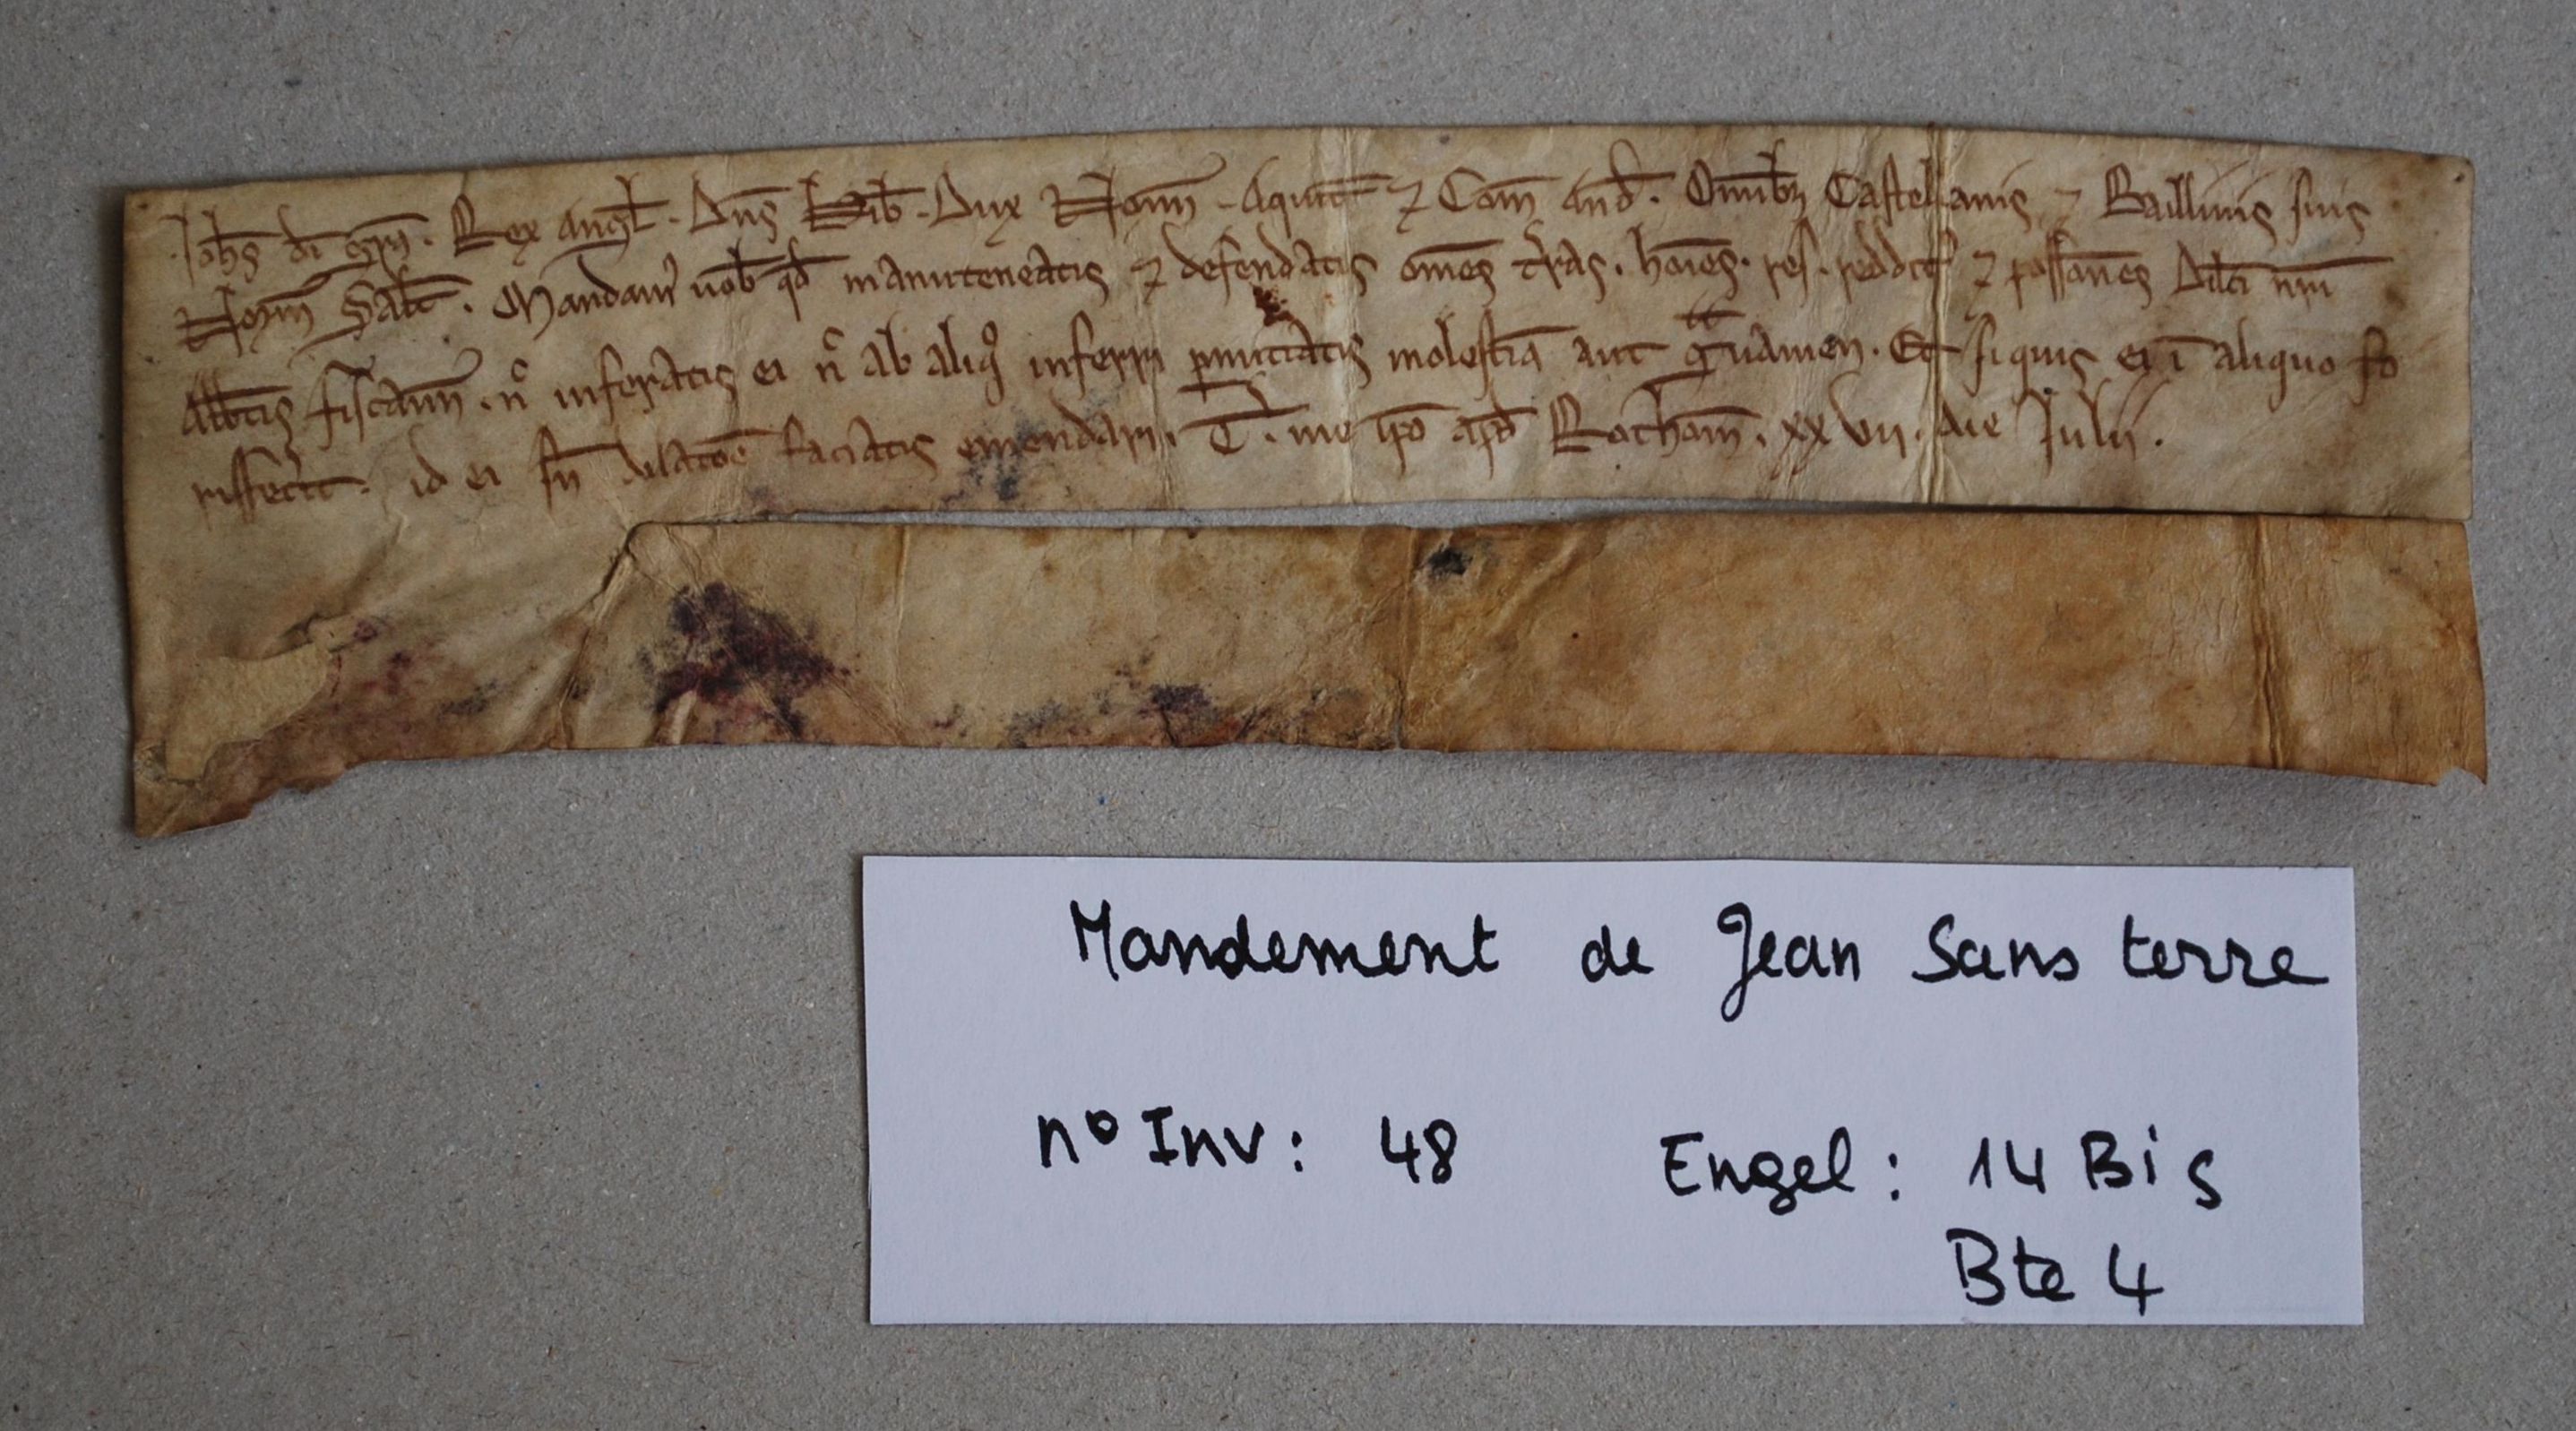 Joh̄s dī gr̄a. Rex Angl̄. Dn̄s Hib̄. Dux Norm̄. Aquit̄ ⁊ Com̄ And̄. Omīb; Castellanis ⁊ Baillivis suis
Norm̄ Sal̄t. Mandam' vob̄ qd̄ manuteneatis ⁊ defendatis om̄es t'ras. hoīes. res. reddit' ⁊ possōnes Dil̄ci nr̄i
Abb̄tis fiscann̄. n̊ inferatis ei n̊ ab aliq̊ inferri p̱mittatis molestiā aut gͣvamen. Et siquis ei ī aliquo fo
risfec'it. id ei sn̄ dilatōe faciatis emendari. T. me ip̄o apd̄ Rothom̄. xxvii. die Julii.
Mandement de Jean Sans terre
n° Inv : 48 Engel : 14 Bis
Bte 4